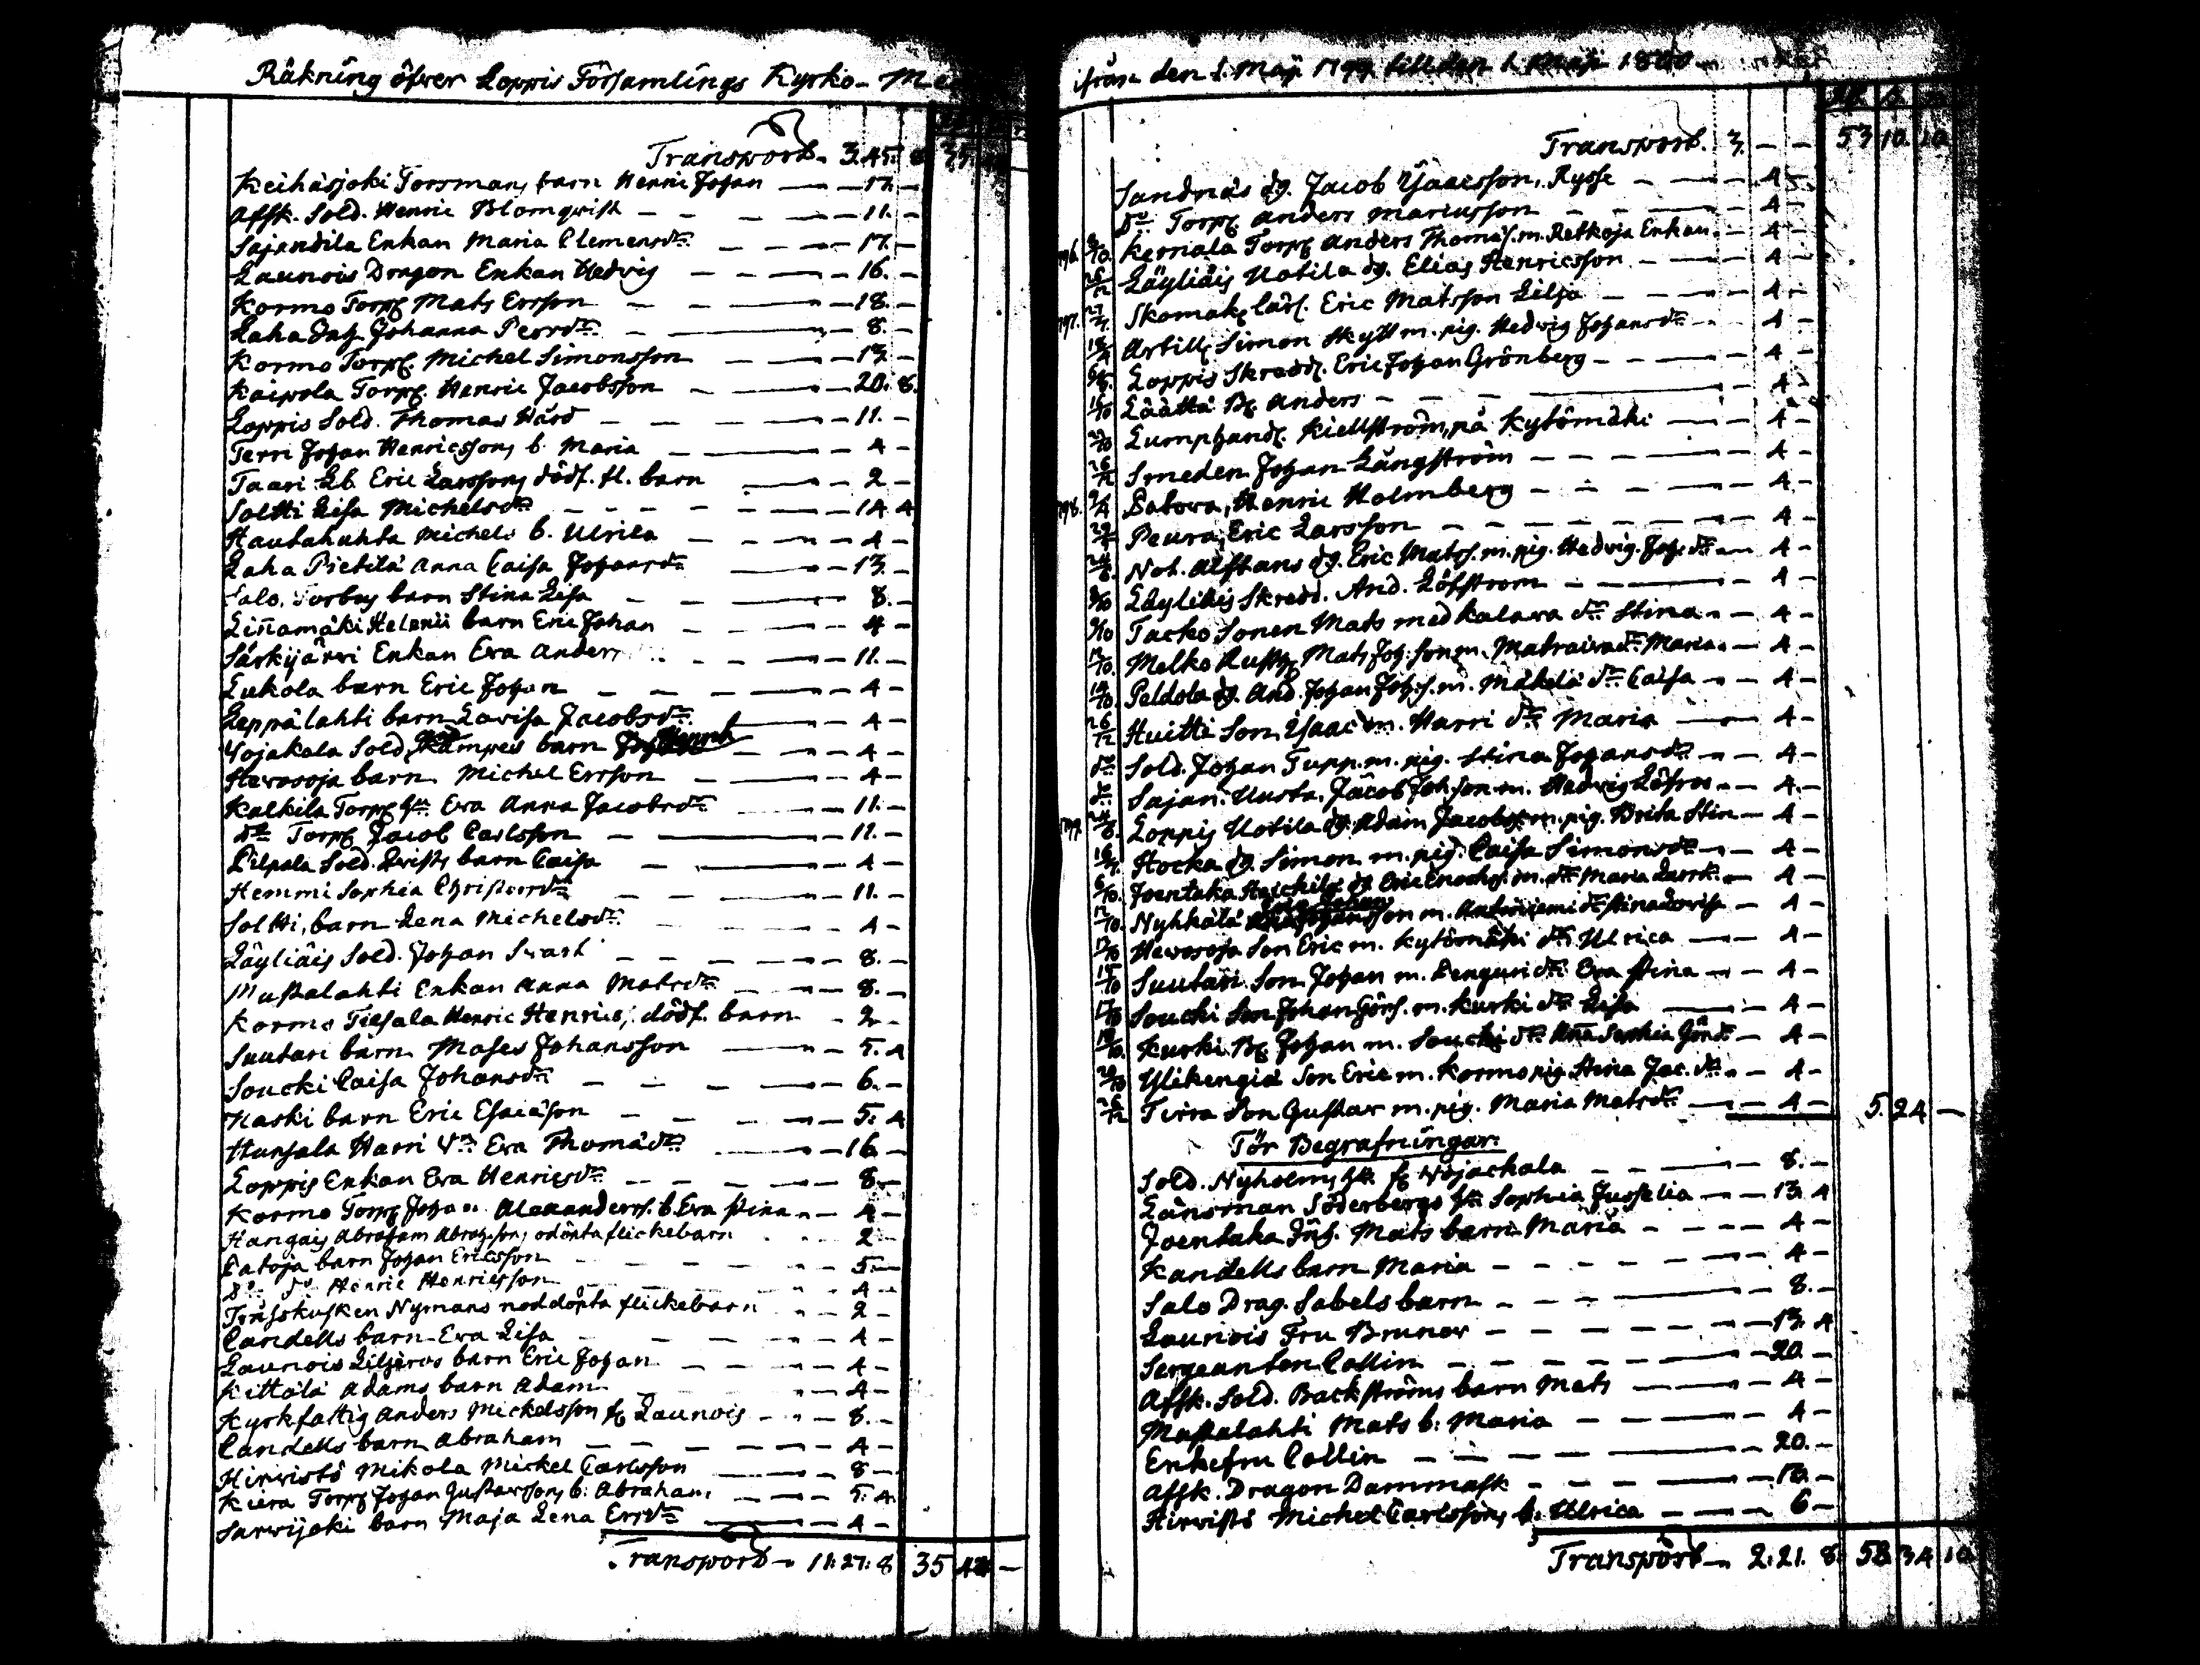 Räkning öfver Loppis Församlings Kyrko-
Transport 3.45. 8 35.
Keihäsjoki Torsmans barn Henric Johan 17. -
Afsk. Sold. Henric Blomqvist 11. -
Sajandila Enkan Maria Clemensdr 17. -
Launois Dragon Enkan Hedvig 16. -
Kormo Torp. Mats Ersson 18. -
Laha Johanna Persdr 8. -
Kormo Torp. Michel Simonsson 13. -
Kaipola Torp. Henric Jacobsson 20. 8.
Loppis Sold. Thomas Hård 11. -
Terri Johan Henricssons b. Maria 4 -
Taari Eric Larssons dödf. fl. barn 2 -
Soltti Lisa Michelsdr 14 4
Hautahuhta Michels b. Ulrica 4 -
Laha Pietilä Anna Caisa Johansdr 13. -
Salo barn Stina Lisa 8. -
Linnamäki Helenii barn Eric Johan 4 -
Särkijärvi Enkan Eva Anders 11. -
Lukola barn Eric Johan 4 -
Leppälahti barn Lovisa Jacobsdr 4 -
Wojakala Sold. Kämpes barn Henrik 4 -
Hevosoja barn Michel Ersson 4 -
Kalkila Torp. h. Eva Anna Jacobsdr 11. -
Do Torp. Jacob Carlsson 11. -
Pilpala Sold. Qvists barn Caisa 4 -
Hemmi Sophia Christersdr 11. -
Soltti, barn Lena Michelsdr 4 -
Läyliäis Sold. Johan Svart 8. -
Mustalahti Enkan Anna Matsdr 8. -
Kormo Tiesala Henric Henrics, dödf. barn 2 -
Suutari barn Moses Johansson 5. 4
Soucki Caisa Johansdr 6. -
Kaski barn Eric Esaiäson 5. 4
Hunsala Harri Eva Thomädr 16. -
Loppis Enkan Eva Henricsdr 8. -
Kormo Torp. Johan Alexanders. b. Eva Stina 4 -
Hangais Abraham Abrah.sons odöpta flickebarn 2 -
Patoja barn Johan Ericsson 5. -
Do do Henric Henricsson 4 -
Nymans noddöpta flickebarn 2 -
Candells barn Eva Lisa 4 -
Launois barn Eric Johan 4 -
Kittälä Adams barn Adam 4 -
Kyrkfattig Anders Mickelsson f. Launois 8. -
Candells barn Abraham 4 -
Hirvistö Mikola Mickel Carlsson 8 -
Kiera Torp. Johan Gustavssons b. Abraham 5. 4.
Sarvijoki barn Maja Lena Ersdr 4 -
Transport 11:27:8 35 42 -
ifrån den 1. Maji 1799 till den 1 Maji 1800
Transport. 3. - - 53 10 10
Sandnäs dg. Jacob Isaacsson, Rysse 4 -
Do Torp. Anders Mariusson 4 -
Kernala Torp. Anders Thomäs. m. Retkoja Enkan 4 -
Läyliäis Uotila dg. Elias Henricsson 4 -
Skomak. lärl. Eric Matsson Lilja 4 -
Artill. Simon Skytt m. pig. Hedvig Johansdr 4 -
Loppis Skredd. Eric Johan Grönberg 4 -
Läättä B. Anders 4 -
Lumphandl. Kiellström, på Kytömäki 4 -
Smeden Johan Långström 4 -
Patova, Henric Holmberg 4 -
Peura, Eric Larsson 4 -
Not. Alftans dg. Eric Mats. m. pig. Hedvig Joh. dr 4 -
Läyliäis Skredd. And. Löfström 4 -
Tacko Sonen Mats med Kalava dr Stina 4 -
Melko Rusth. Mats Joh. son m. Matraiva dr Maria 4 -
Peldola dg. And. Johan Joh. s. m. Mäkelä dr Caisa 4 -
Huitti Son Isaac m. Harri dr Maria 4 -
Sold. Johan Tupp. m. pig. Stina Johansdr 4 -
Sajan. Uusta. Jacob Joh.son m. Hedvig Löfros 4 -
Loppis Uotila dg. Adam Jacobs. m. pig. Brita Stin 4 -
Hocka dg. Simon m. pig. Caisa Simonsdr 4 -
Joentaka Heickilä dg. Eric Enochs. m. dr Maria Larsdr 4 -
Nyhkälä m. dr Stina Lovisa 4 -
Hevosoja Son Eric m. Kytömäki dr Ulrica 4 -
Suutari Son Johan m. Penguri dr Eva Stina 4 -
Soucki Son Johan Görs. m. Kurki dr Lisa 4 -
Kurki B. Johan m. Soucki dr Anna Sophia 4 -
Ylikengiä Son Eric m. Kormo pig. Stina Jac. dr 4 -
Tirra Son Gustav m. pig. Maria Matsdr 4 - 5. 24 -
För Begrafningar:
Sold. Nyholms h. f. Wojackala 8. -
Länsman Söderbergs h. Sophia Jusselia 13. 4
Joentaka Mats barn Maria 4 -
Kandells barn Maria 4 -
Salo Drag. Sabels barn 8. -
Launois Fru Bruner 13. 4
Sergeanten Collin 20. -
Afsk. Sold. Backströms barn Mats 4 -
Mustalahti Mats b. Maria 4 -
Enkefru Collin 20. -
Afsk. Dragon Dammask 10. -
Hirvistö Michel Carlssons b. Ulrica 6 -
Transport 2:21. 8. 58 34 10